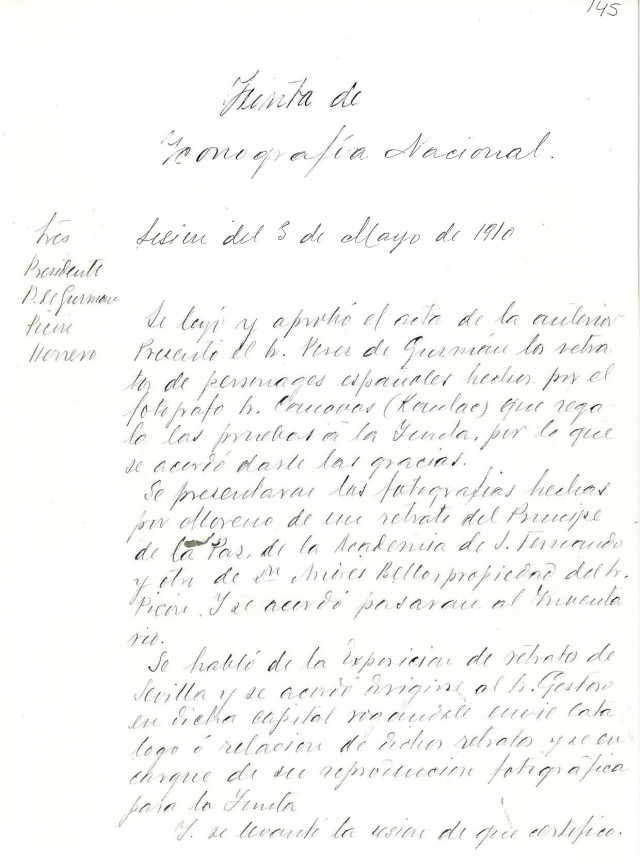 145
Junta de
Iconografía Nacional.
Sres
Presidente
P. de Guzman
Picón
Herrero
Sesion del 3 de Mayo de 1910
Se leyó y aprobó el acta de la anterior
Presentó el Sr. Peres de Guzmán los retra
tos de personages españoles hechos por el
fotógrafo Sr. Canovas (Kaulac) que rega
la las pruebas á la Junta, por lo que
se acordó darle las gracias.
Se presentaron las fotografías hechas
por Moreno de un retrato del Principe
de la Paz, de la Academia de S. Fernando
y otro de Dn Nieves Bello, propiedad del Sr.
Picón. Y se acordó pasaran al Inventa
rio.
Se habló de la Exposicion de retrato de
Sevilla y se acordó dirigirse al Sr. Gestoso
en dicha capital rogandole envie Cata
logo ó relacion de dichos retratos y se en
cargue de su reproduccion fotográfica
para la Junta
Y se levantó la sesion de que certifico.